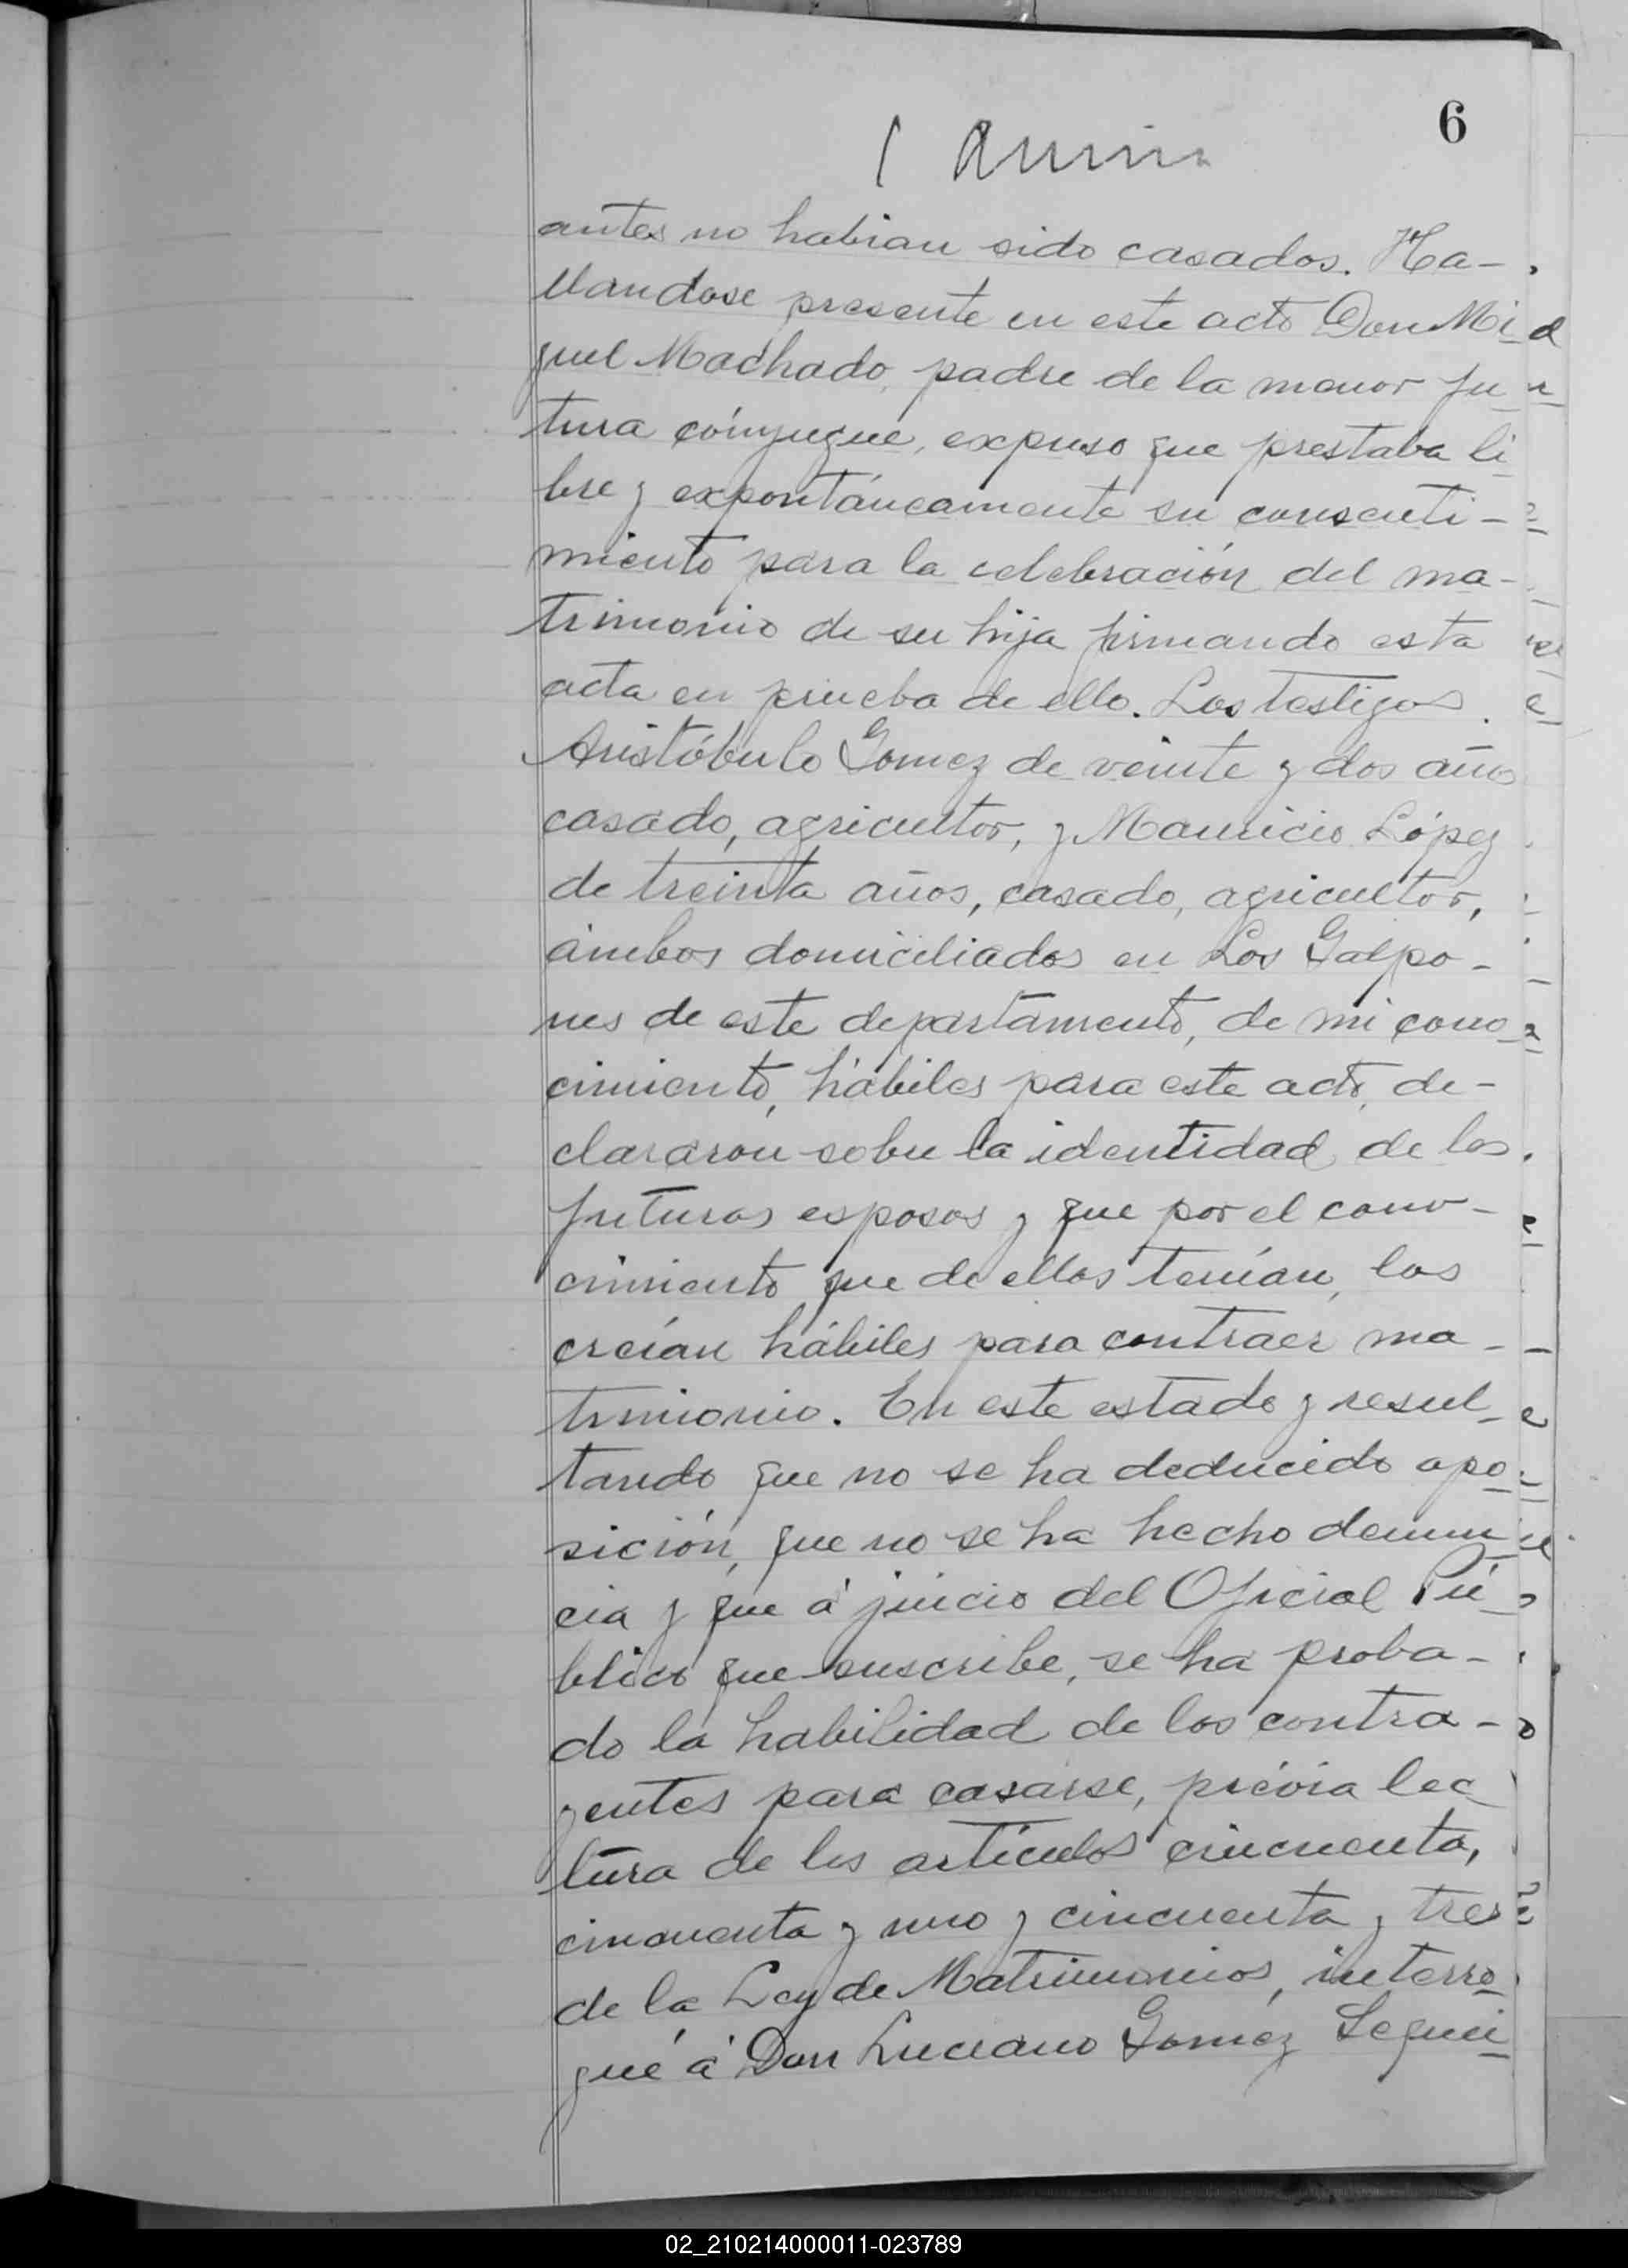 6
antes no habian sido casados. Ha-
llandose presente en este acto Don Mi
guel Machado, padre de la menor fu
tura cónyugue, expuso que prestaba li
bre y expontáneamente su consenti-
miento para la celebración del ma-
trimonio de su hija firmando esta
acta en prueba de ello. Los testigos
Aristóbulo Gomez de veinte y dos años
casado, agricultor, y Mauricio López
de treinta años, casado, agricultor,
ámbos domiciliados en Los Galpo-
nes de este departamento, de mi cono
cimiento, hábiles para este acto, de-
clararon sobre la identidad de los
futuros esposos y que por el cono-
cimiento que de ellos tenían, los
creían hábiles para contraer ma-
trimonio. En este estado y resul-
tando que no se ha deducido opo-
sición, que no se ha hecho denun
cia y que á juicio del Oficial Pú-
blico que suscribe, se ha proba-
do la habilidad de los contra-
yentes para casarse, prévia lec
tura de los artículos cincuenta,
cincuenta y uno y cincuenta y tres
de la Ley de Matrimonios, interro
gué á Don Luciano Gomez Segui
02_210214000011-023789